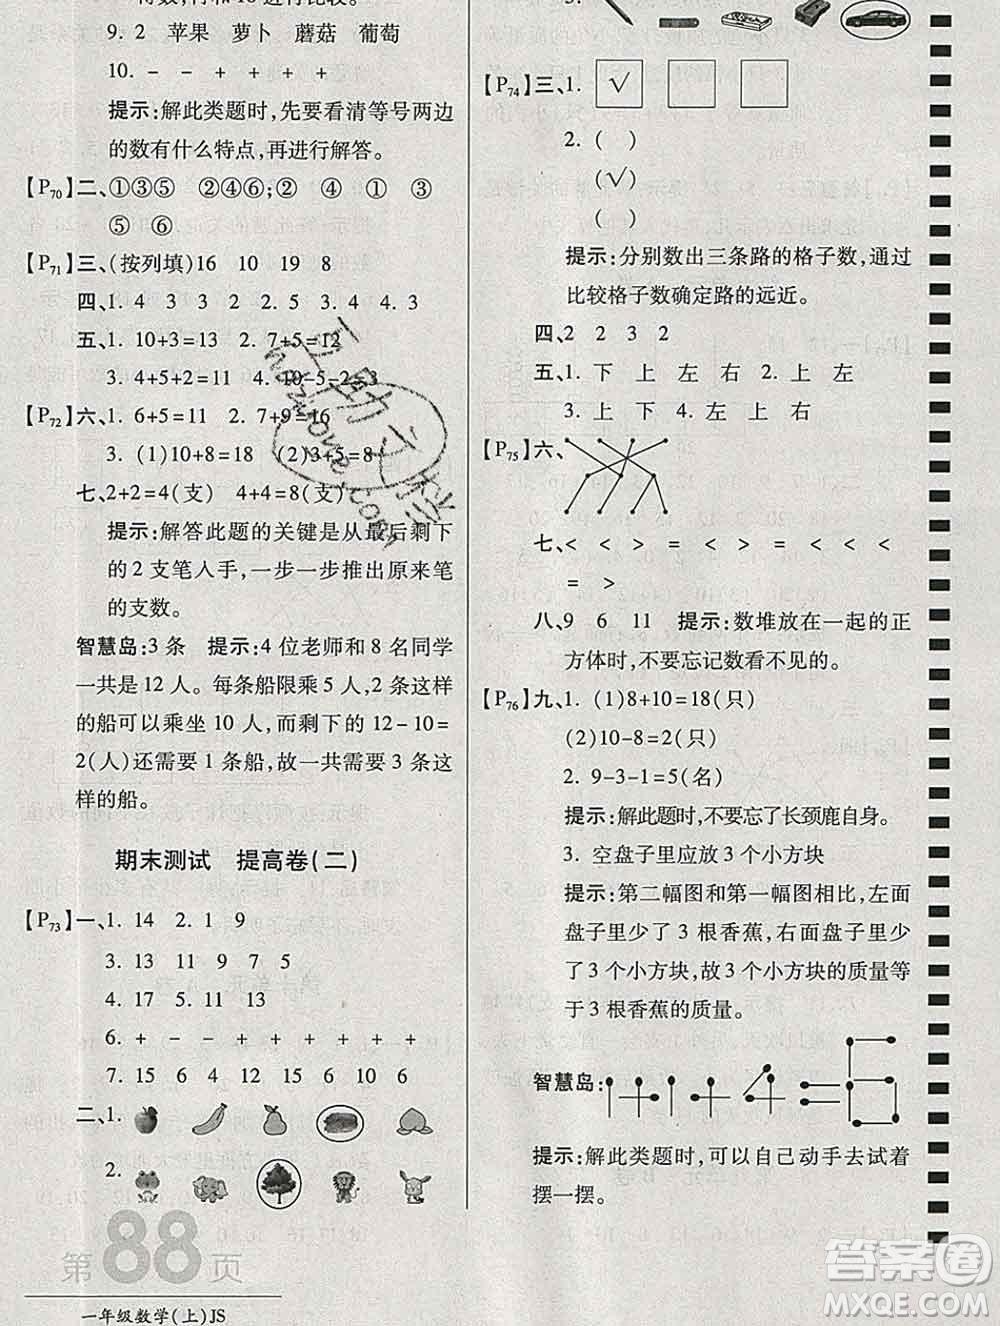 9. 2 苹果 萝卜 蘑菇 葡萄
10. － － ＋ ＋ ＋ ＋
提示:解此类题时,先要看清等号两边
的数有什么特点,再进行解答。
【P70】二、①③⑤ ②④⑥;② ④ ① ③
⑤ ⑥
【P71】三、(按列填)16 10 19 8
四、1. 4 3 3 2 2. 5 3. 4 4. 3
五、1. 10+3=13 2. 7+5=12
3. 4+5+2=11 4. 10-5-2=3
【P72】六、1. 6+5=11 2. 7+9=16
3. (1)10+8=18 (2)3+5=8
七、2+2=4(支) 4+4=8(支)
提示:解答此题的关键是从最后剩下
的2支笔入手,一步一步推出原来笔
的支数。
智慧岛:3条 提示:4位老师和8名同学
一共是12人。每条船限乘5人,2条这样
的船可以乘坐10人,而剩下的12-10=
2(人)还需要1条船,故一共需要3条这
样的船。
期末测试 提高卷(二)
【P73】一、1. 14 2. 1 9
3. 13 11 9 7 5
4. 17 5. 11 13
6. ＋ － － ＋ ＋ ＋ ＋
7. 15 6 4 12 15 10 6
二、1.
2.
第88页
一年级数学(上)JS
3.
【P74】三、1. √
2. ( )
(√)
( )
提示:分别数出三条路的格子数,通过
比较格子数确定路的远近。
四、2 2 3 2
五、1. 下 上 左 右 2. 上 左
3. 上 下 4. 左 上 右
【P75】六、
七、< < > = < > = < < <
= >
八、9 6 11 提示:数堆放在一起的正
方体时,不要忘记数看不见的。
【P76】九、1. (1)8+10=18(只)
(2)10-8=2(只)
2. 9-3-1=5(名)
提示:解此题时,不要忘了长颈鹿自身。
3. 空盘子里应放3个小方块
提示:第二幅图和第一幅图相比,左面
盘子里少了3根香蕉,右面盘子里少
了3个小方块,故3个小方块的质量等
于3根香蕉的质量。
智慧岛:
提示:解此类题时,可以自己动手去试着
摆一摆。
答案圈
MXQE.COM